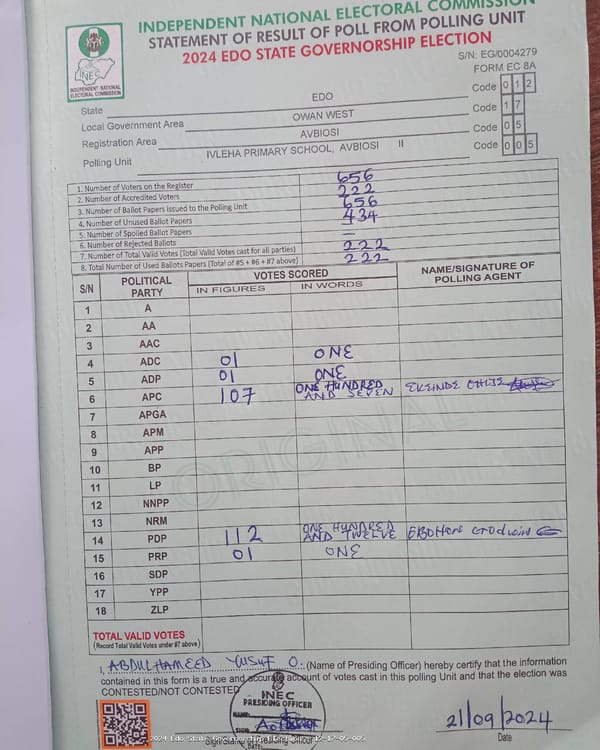 INDEPENDENT NATIONAL ELECTORAL COMMISSION
STATEMENT OF RESULT OF POLL FROM POLLING UNIT
2024 EDO STATE GOVERNORSHIP ELECTION
INEC
INDEPENDENT NATIONAL ELECTORAL COMMISSION
S/N: EG/0004279
FORM EC 8A
State EDO Code 0 1 2
Local Government Area OWAN WEST Code 1 7
Registration Area AVBIOSI Code 0 5
Polling Unit IVLEHA PRIMARY SCHOOL, AVBIOSI II Code 0 0 5
1. Number of Voters on the Register 656
2. Number of Accredited Voters 222
3. Number of Ballot Papers issued to the Polling Unit 656
4. Number of Unused Ballot Papers 434
5. Number of Spoiled Ballot Papers –
6. Number of Rejected Ballots –
7. Number of Total Valid Votes (Total Valid Votes cast for all parties) 222
8. Total Number of Used Ballots Papers (Total of #5 + #6 + #7 above) 222
S/N POLITICAL PARTY VOTES SCORED NAME/SIGNATURE OF POLLING AGENT
IN FIGURES IN WORDS
1 A
2 AA
3 AAC
4 ADC 01 ONE
5 ADP 01 ONE
6 APC 107 ONE HUNDRED AND SEVEN
7 APGA
8 APM
9 APP
10 BP
11 LP
12 NNPP
13 NRM
14 PDP 112 ONE HUNDRED AND TWELVE Godwin
15 PRP 01 ONE
16 SDP
17 YPP
18 ZLP
ORIGINAL
TOTAL VALID VOTES
(Record Total Valid Votes under #7 above)
I, ABDULHAMEED YUSUF O. (Name of Presiding Officer) hereby certify that the information
contained in this form is a true and accurate account of votes cast in this polling Unit and that the election was
CONTESTED/NOT CONTESTED
INEC
PRESIDING OFFICER
NAME:
SIGN:
DATE:
21/09/2024
Date